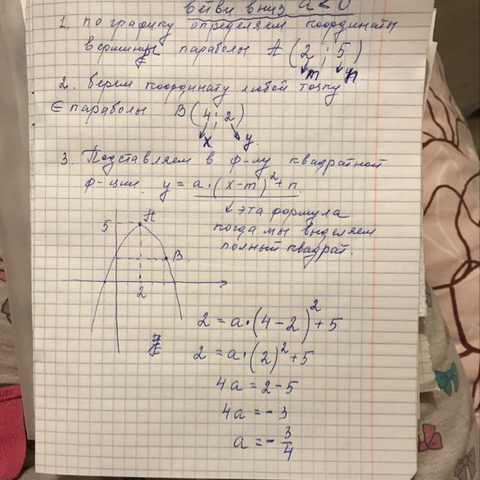 ветви вниз a<0
1. по графику определяем координаты
вершины параболы A (2 ; 5)
m n
2. берем координату любой точки
∈ параболы B (4; 2)
x y
3. Подставляем в ф-лу квадратной
ф-ции. y = a·(x-m)²+n.
↓ эта формула
когда мы выделяем
полный квадрат.
A
5
B
2
2 = a·(4-2)²+5
2 = a·(2)²+5
4a = 2-5
4a = -3
a = -3/4